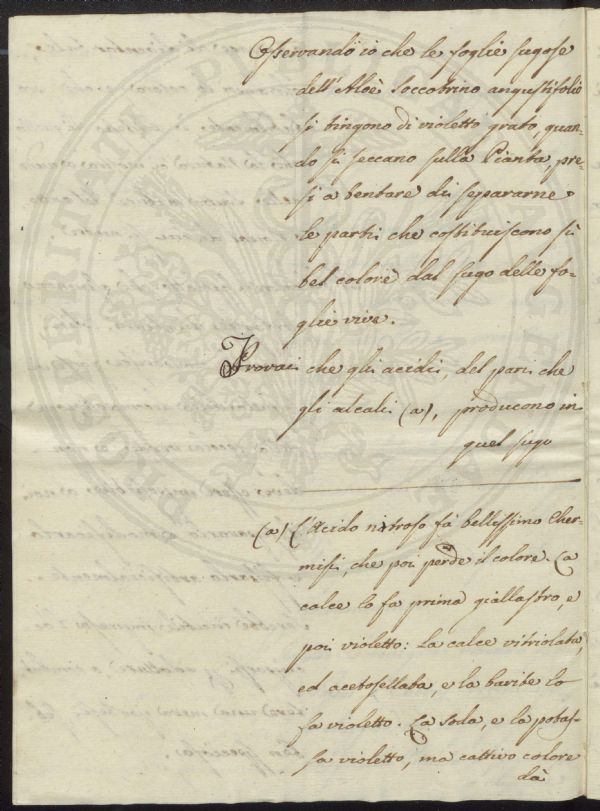 Osservando io che le foglie sugose
dell' Aloè Soccotrino angustifolio
si tingono di violetto grato, quan-
do si seccano sulla Pianta, pre-
si a tentare di separarne
le parti che costituiscono sì
bel colore dal sugo delle fo-
glie vive.
Provai che gli acidi, del pari che
gli alcali (a), producono in
quel sugo
(a) L'Acido nitroso fà bellissimo Cher-
misi, che poi perde il colore. La
calce lo fa prima giallastro, e
poi violetto: La calce vitriolata,
ed acetosellata, e la barite lo
fa violetto. La soda, e la potas-
sa violetto, ma cattivo colore
dà